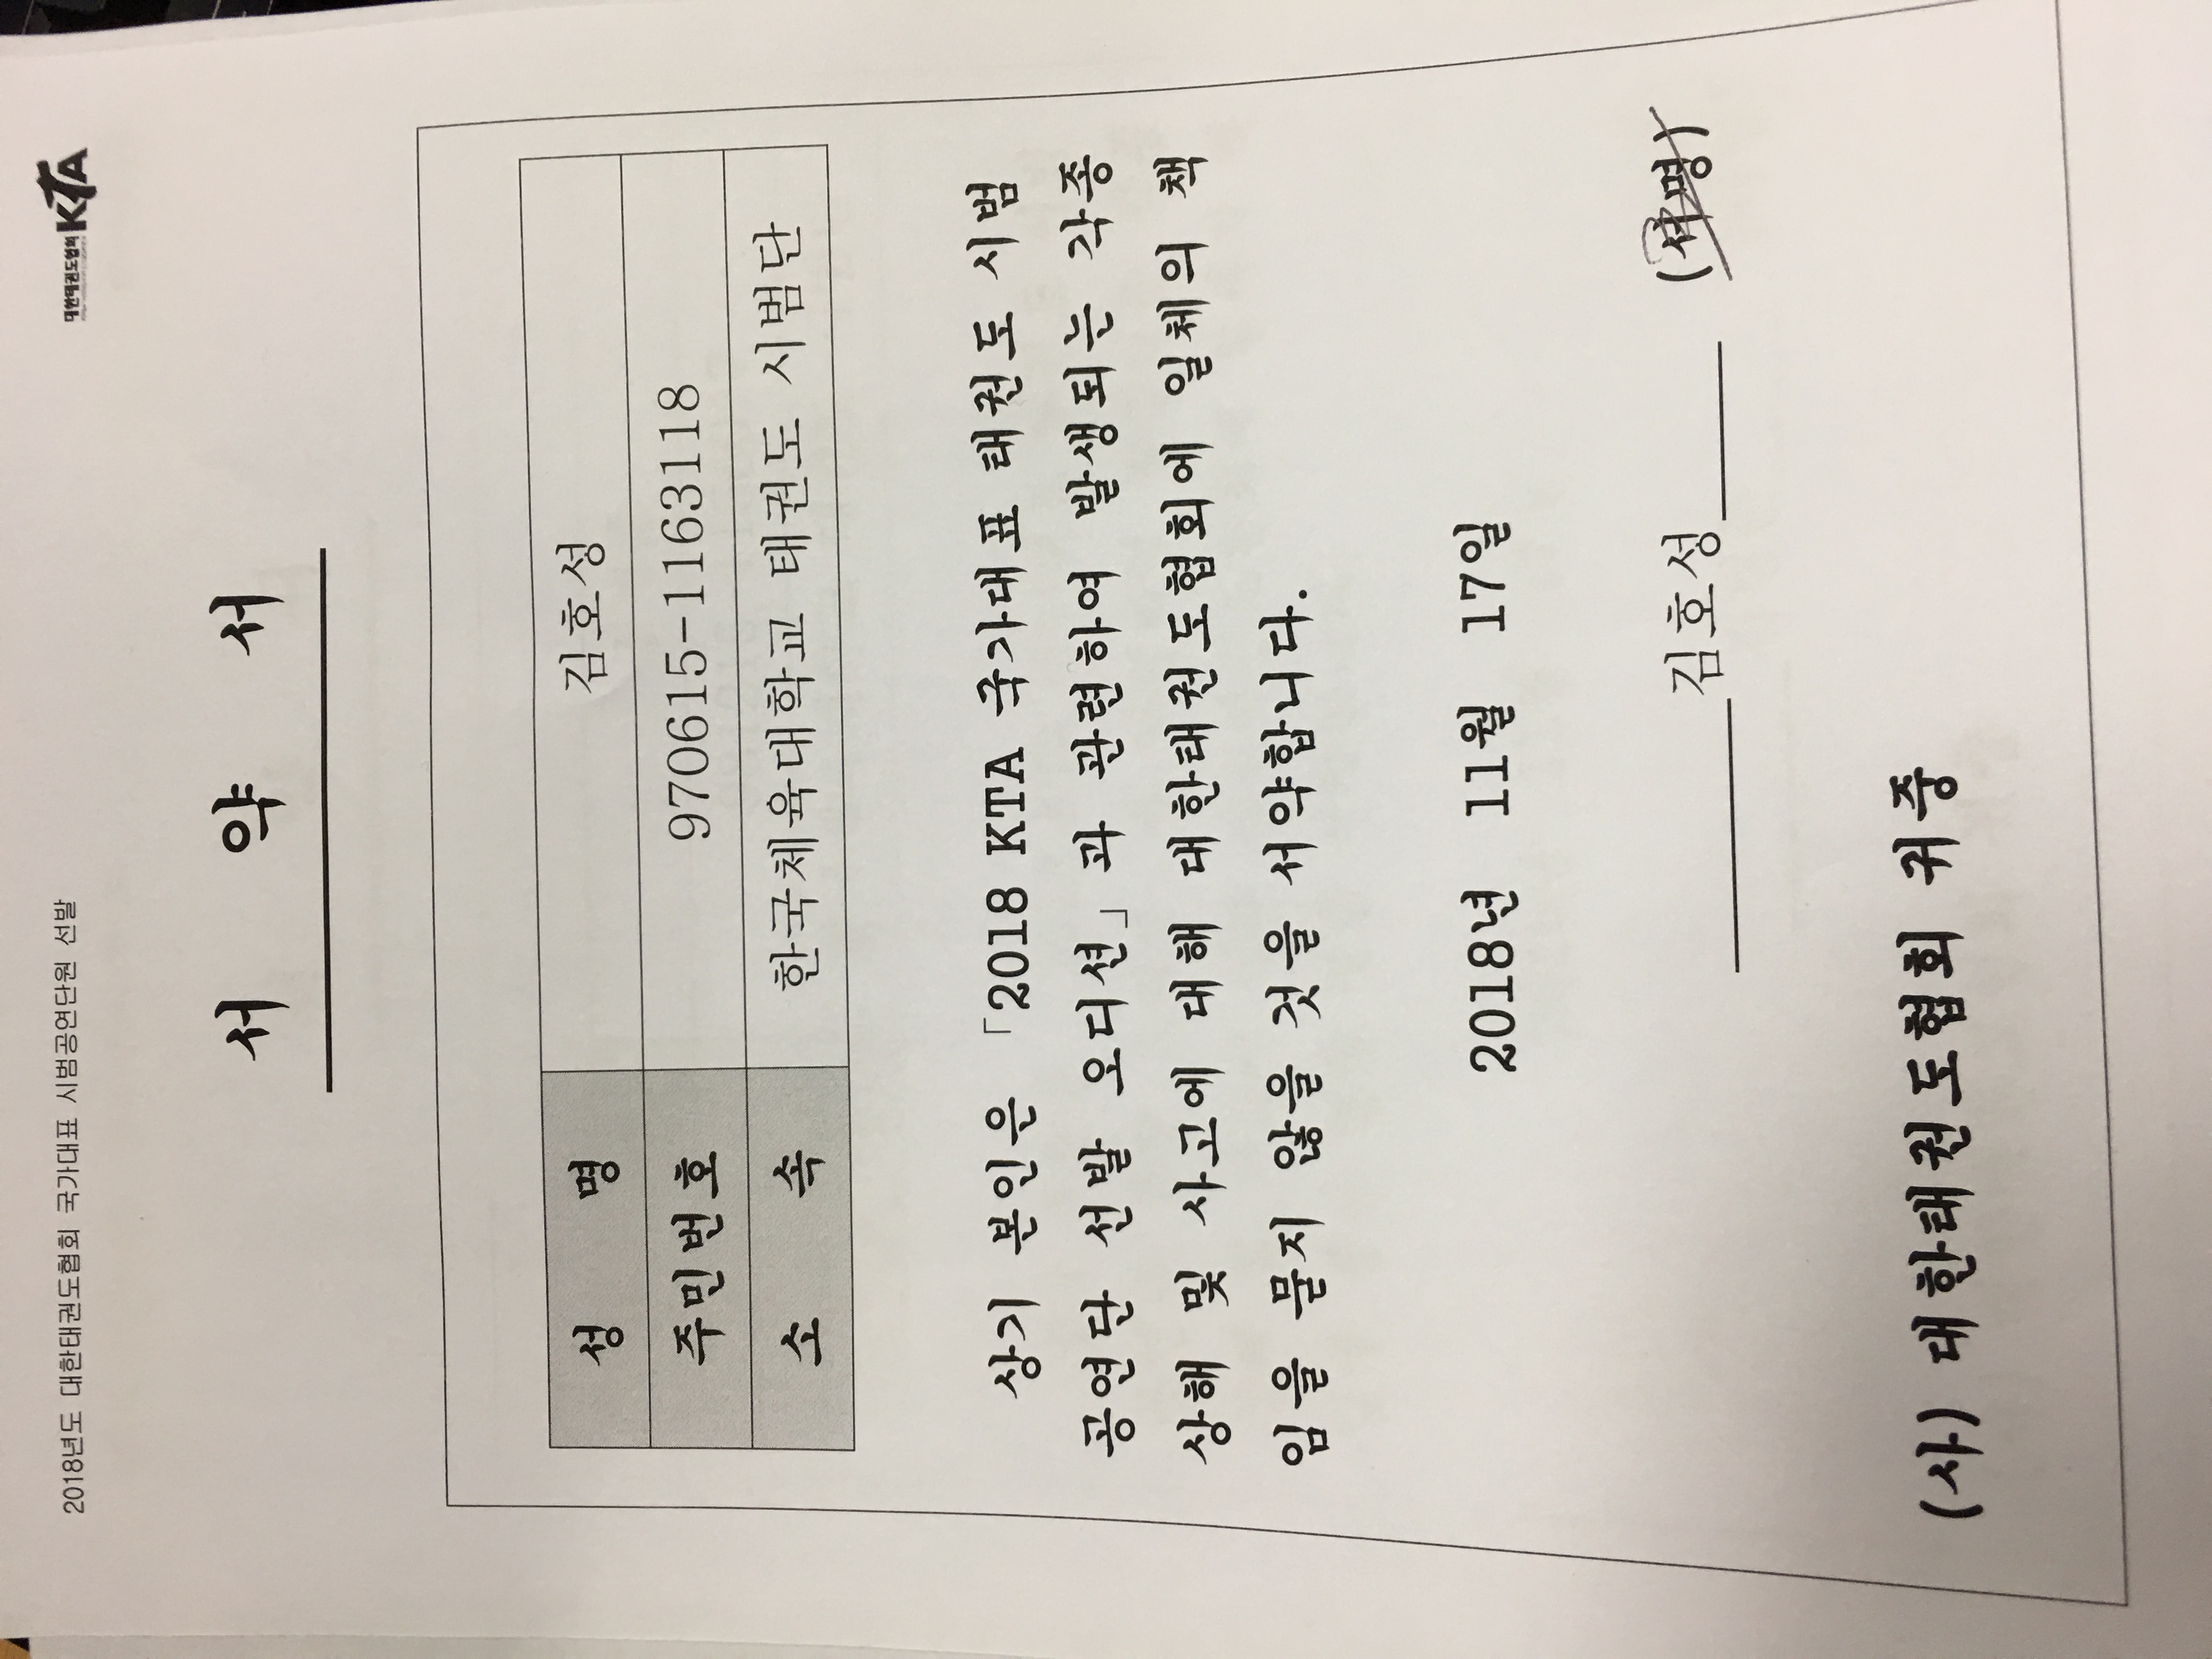 2018년도 대한태권도협회 국가대표 시범공연단원 선발
대한태권도협회 KTA
서 약 서
성 명 김호성
주민번호 970615-1163118
소 속 한국체육대학교 태권도 시범단
상기 본인은 「2018 KTA 국가대표 태권도 시범
공연단 선발 오디션」과 관련하여 발생되는 각종
상해 및 사고에 대해 대한태권도협회에 일체의 책
임을 묻지 않을 것을 서약합니다.
2018년 11월 17일
김호성 (서명)
(사) 대한태권도협회 귀중